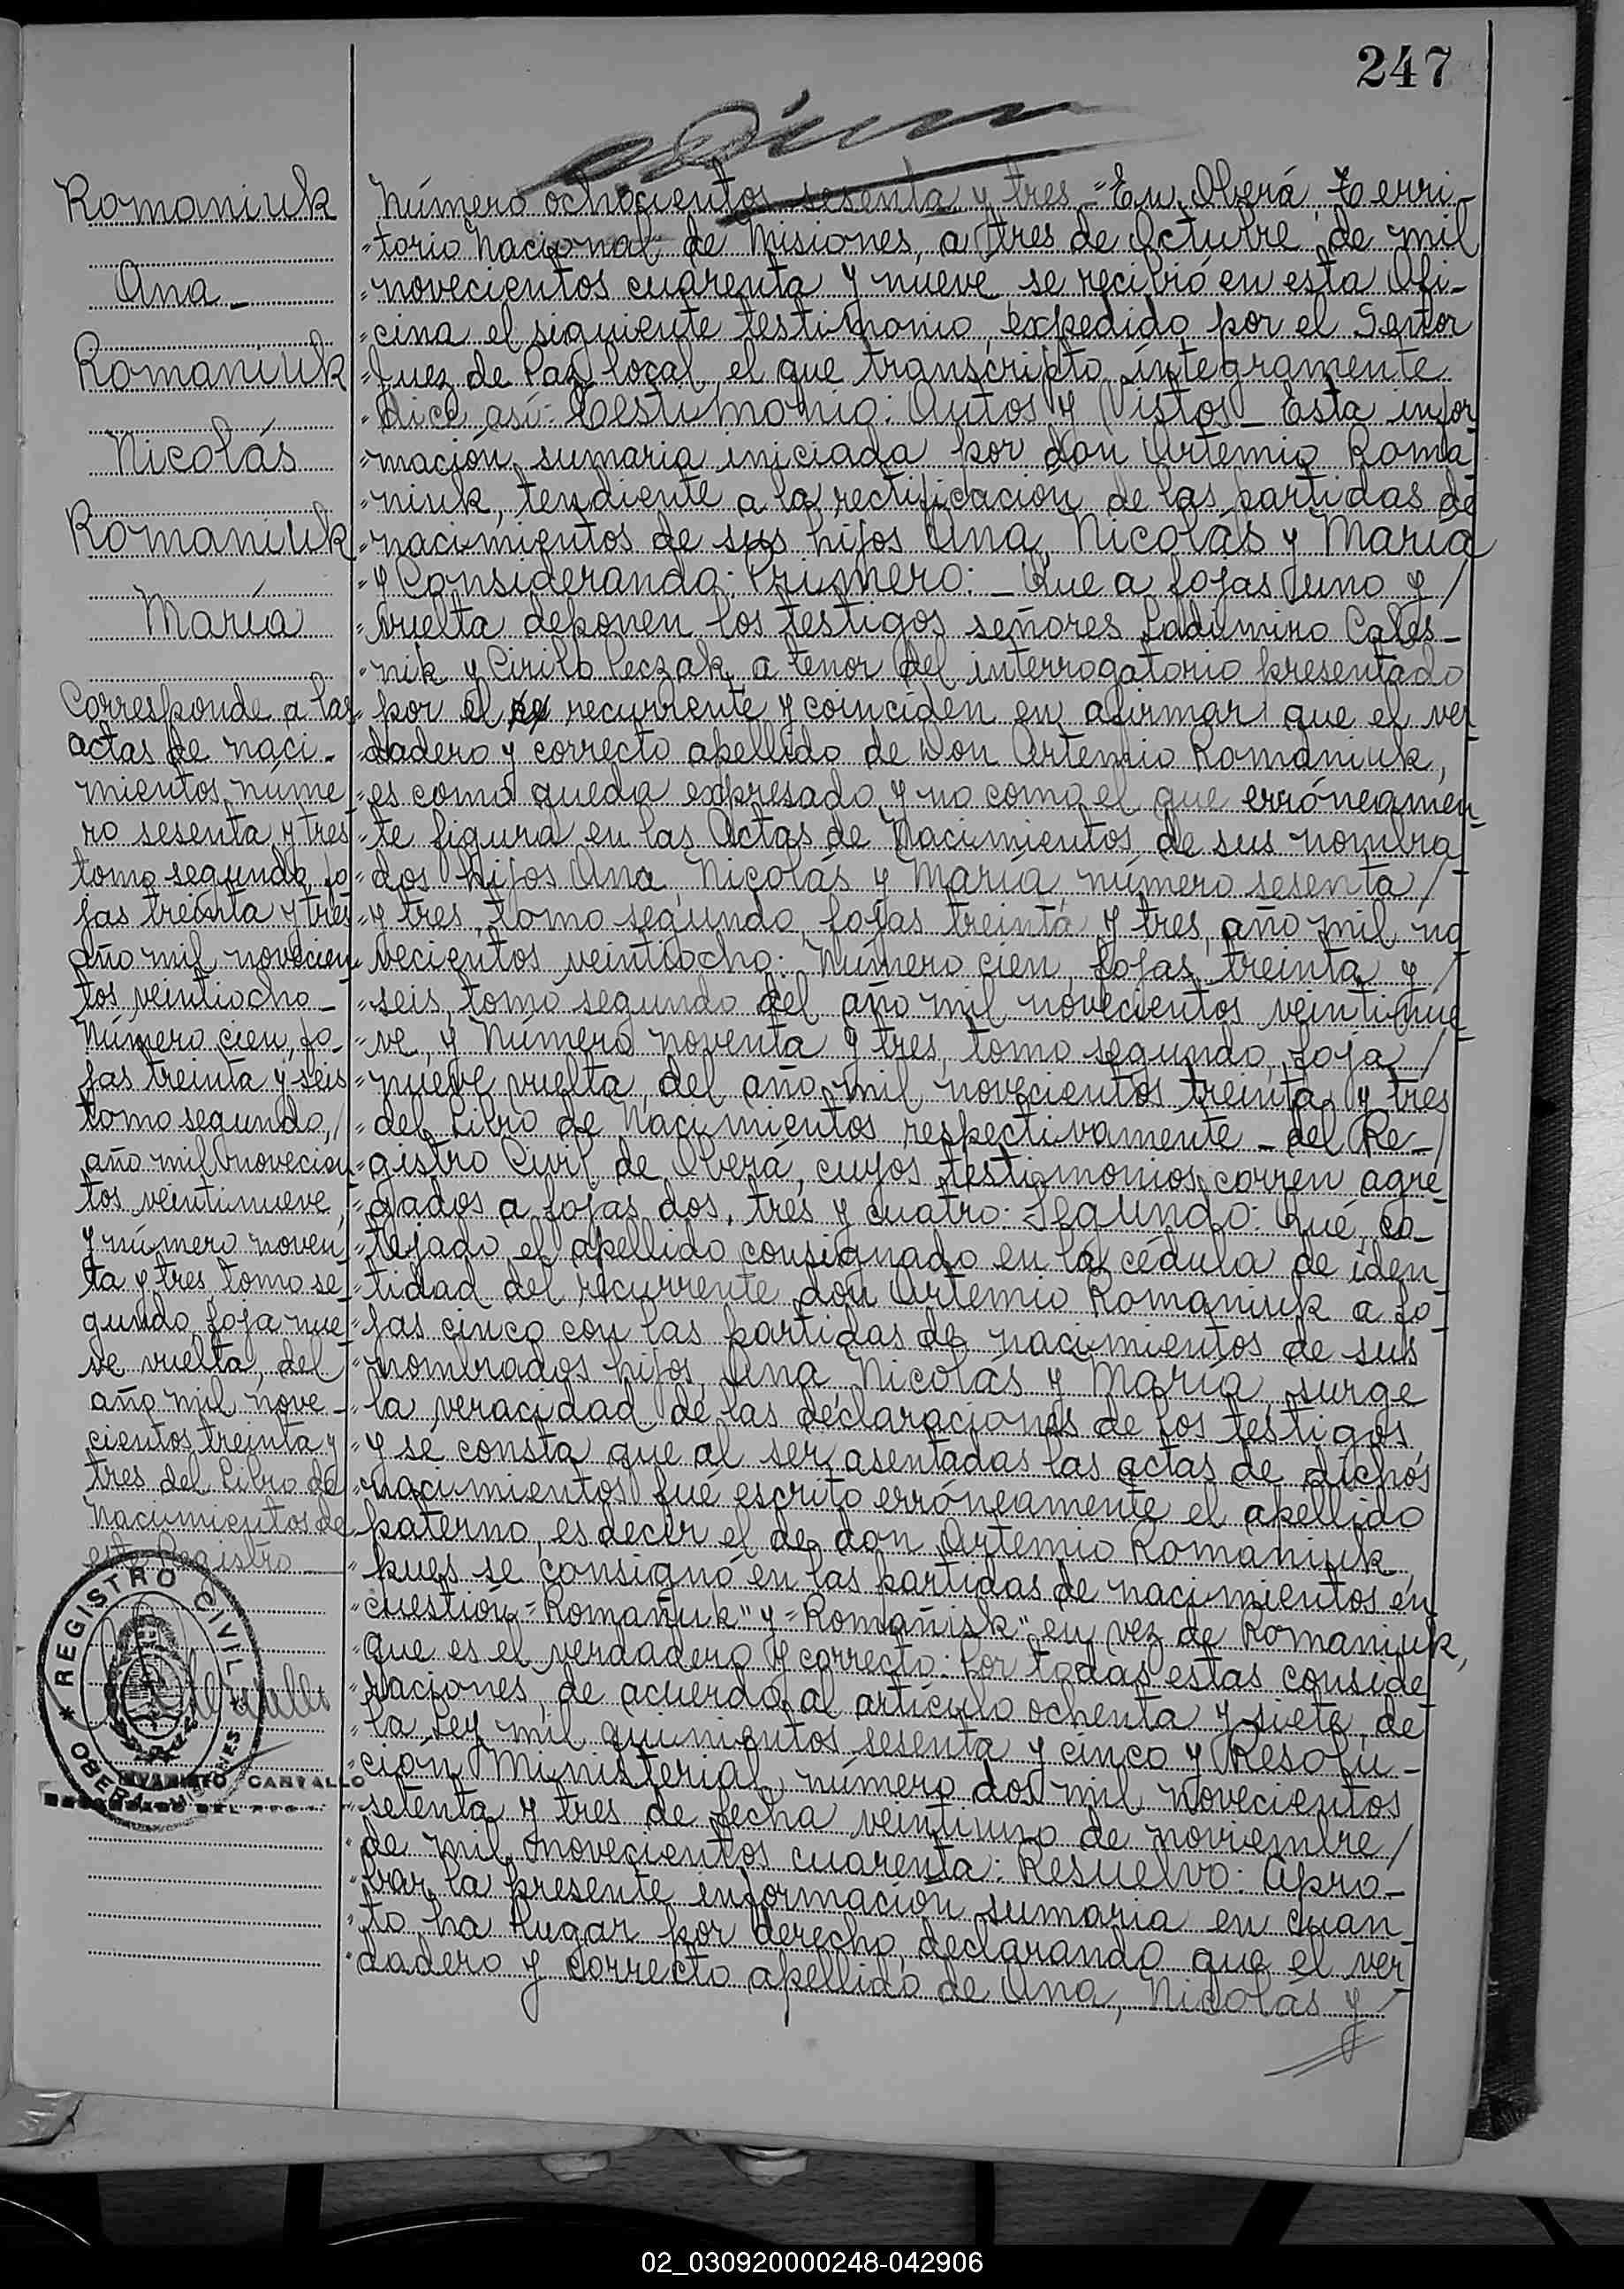 247
Romaniuk
Ana
Romaniuk
Nicolás
Romaniuk
María
Corresponde a las
actas de naci-
mientos núme
ro sesenta y tres
tomo segundo, fo
jas treinta y tres
año mil novecien
tos veintiocho-
Número cien, fo-
jas treinta y seis
tomo segundo,/
año mil novecien
tos veintinueve,
y número noven
ta y tres tomo se-
gundo, foja nue-
ve vuelta, del
año mil nove-
cientos treinta y
tres del Libro de
Nacimientos de
este Registro
REGISTRO CIVIL
OBERÁ MISIONES
EVARISTO CARVALLO
Número ochocientos sesenta y tres - En Oberá, Terri-
torio Nacional de Misiones, a tres de Octubre de mil
novecientos cuarenta y nueve se recibió en esta Ofi-
cina el siguiente testimonio, expedido por el Señor
Juez de Paz local, el que transcripto íntegramente
dice así: Testimonio: Autos y Vistos - Esta infor
mación sumaria iniciada por don Artemio Roma
niuk, tendiente a la rectificación de las partidas de
nacimientos de sus hijos Ana, Nicolás y María
y Considerando: Primero: - Que a fojas uno y/
vuelta deponen los testigos señores Ladimiro Cales-
nik y Cirilo Peczak a tenor del interrogatorio presentado
por el recurrente y coinciden en afirmar que el ver
dadero y correcto apellido de Don Artemio Romaniuk,
es como queda expresado, y no como el que erróneamen-
te figura en las Actas de Nacimientos de sus nombra
dos hijos Ana, Nicolás y María, número sesenta/
y tres, tomo segundo, fojas treinta y tres, año mil no
vecientos veintiocho: Número cien, fojas treinta y/
seis, tomo segundo del año mil novecientos veintinue
ve, y Número noventa y tres, tomo segundo, foja/
nueve vuelta, del año mil novecientos treinta y tres
del Libro de Nacimientos respectivamente - del Re-/
gistro Civil de Oberá, cuyos testimonios corren agre-
gados a fojas dos, tres y cuatro: Segundo: Que, co-
tejado el apellido consignado en la cédula de iden
tidad del recurrente don Artemio Romaniuk a fo-
jas cinco con las partidas de nacimientos de sus
nombrados hijos, Ana, Nicolás y María, surge
la veracidad de las declaraciones de los testigos,
y se consta que al ser asentadas las actas de dichos
nacimientos fué escrito erróneamente el apellido
paterno, es decir el de don Artemio Romaniuk,
pues se consignó en las partidas de nacimientos en
cuestión = Romañuk" y = Romañisk" en vez de Romaniuk,
que es el verdadero y correcto: Por todas estas conside
raciones, de acuerdo al artículo ochenta y siete, de
la Ley mil quinientos sesenta y cinco y Resolu-
ción Ministerial número dos mil novecientos
setenta y tres de fecha veintiuno de noviembre/
de mil novecientos cuarenta: Resuelvo: Apro-
bar la presente información sumaria en cuan
to ha lugar por derecho, declarando que el ver
dadero y correcto apellido de Ana, Nicolás y
02_030920000248-042906